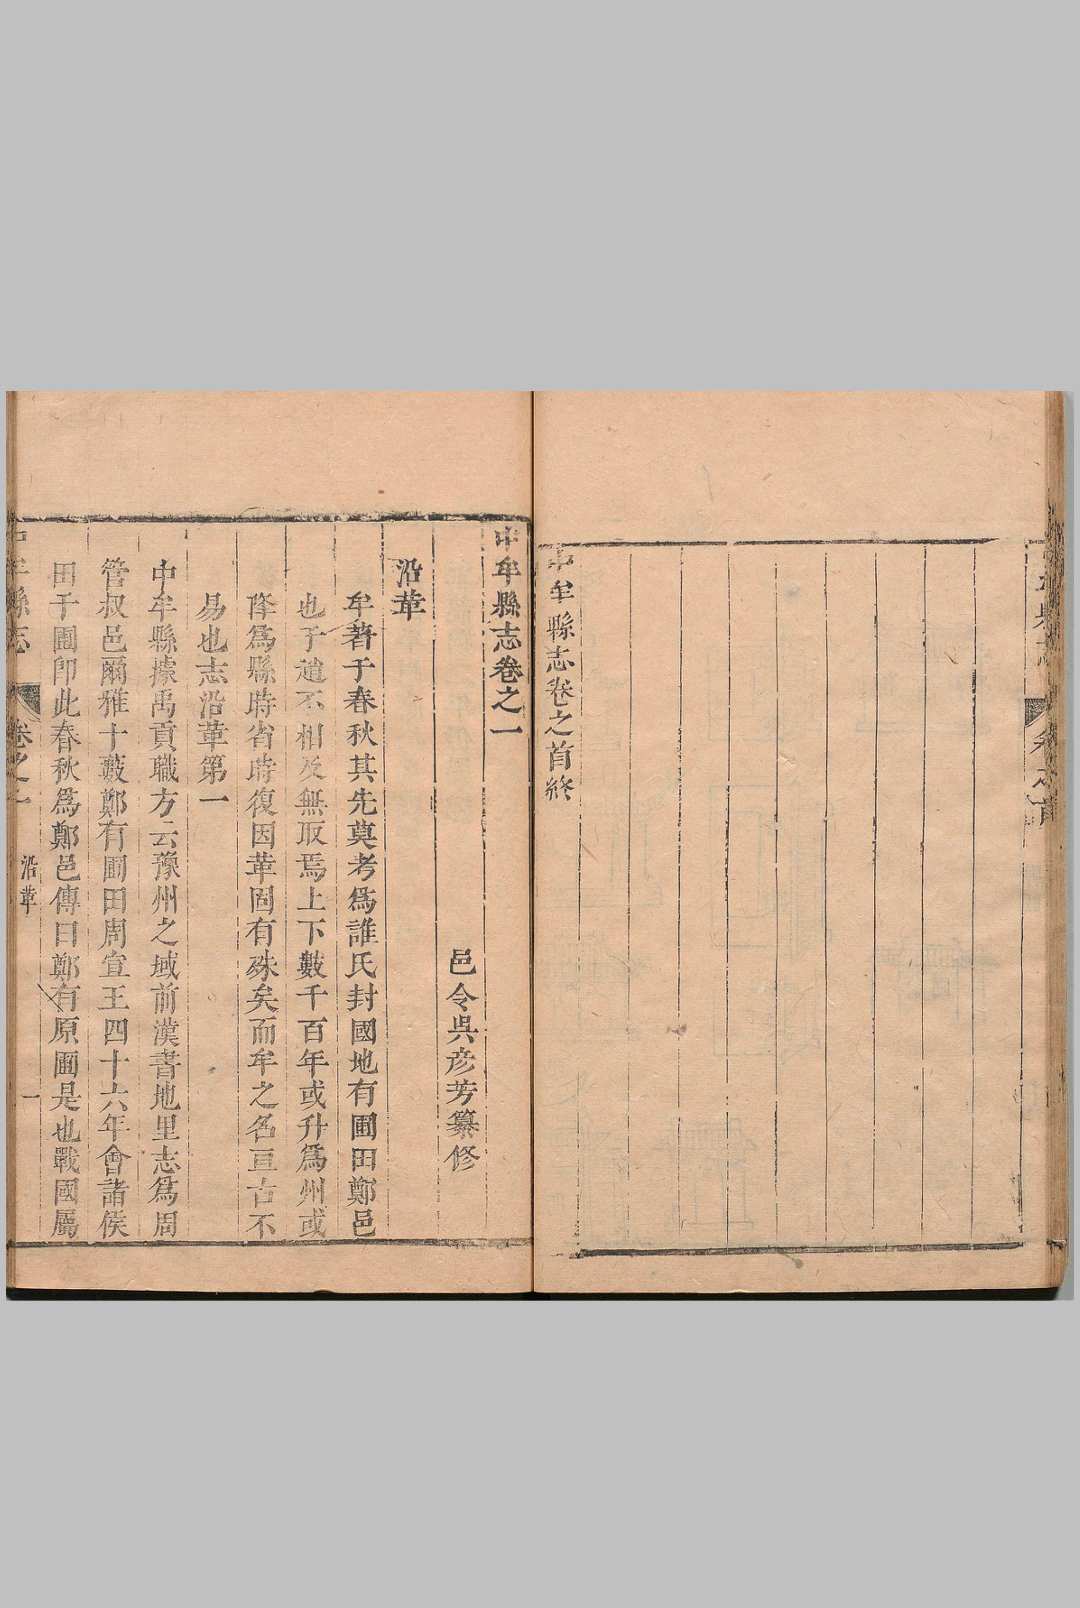 中牟縣志卷之首終
中牟縣志卷之一
邑令吳彦芳纂修
沿革
牟著于春秋其先莫考爲誰氏封國地有圃田鄭邑
也于趙不相及無取焉上下數千百年或升爲州或
降爲縣時省時復因革固有殊矣而牟之名亘古不
易也志沿革第一
中牟縣據禹貢職方云豫州之域前漢書地里志爲周
管叔邑爾雅十藪鄭有圃田周宣王四十六年會諸侯
田于圃卽此春秋爲鄭邑傳曰鄭有原圃是也戰國屬
中牟縣志
卷之一
沿革
一